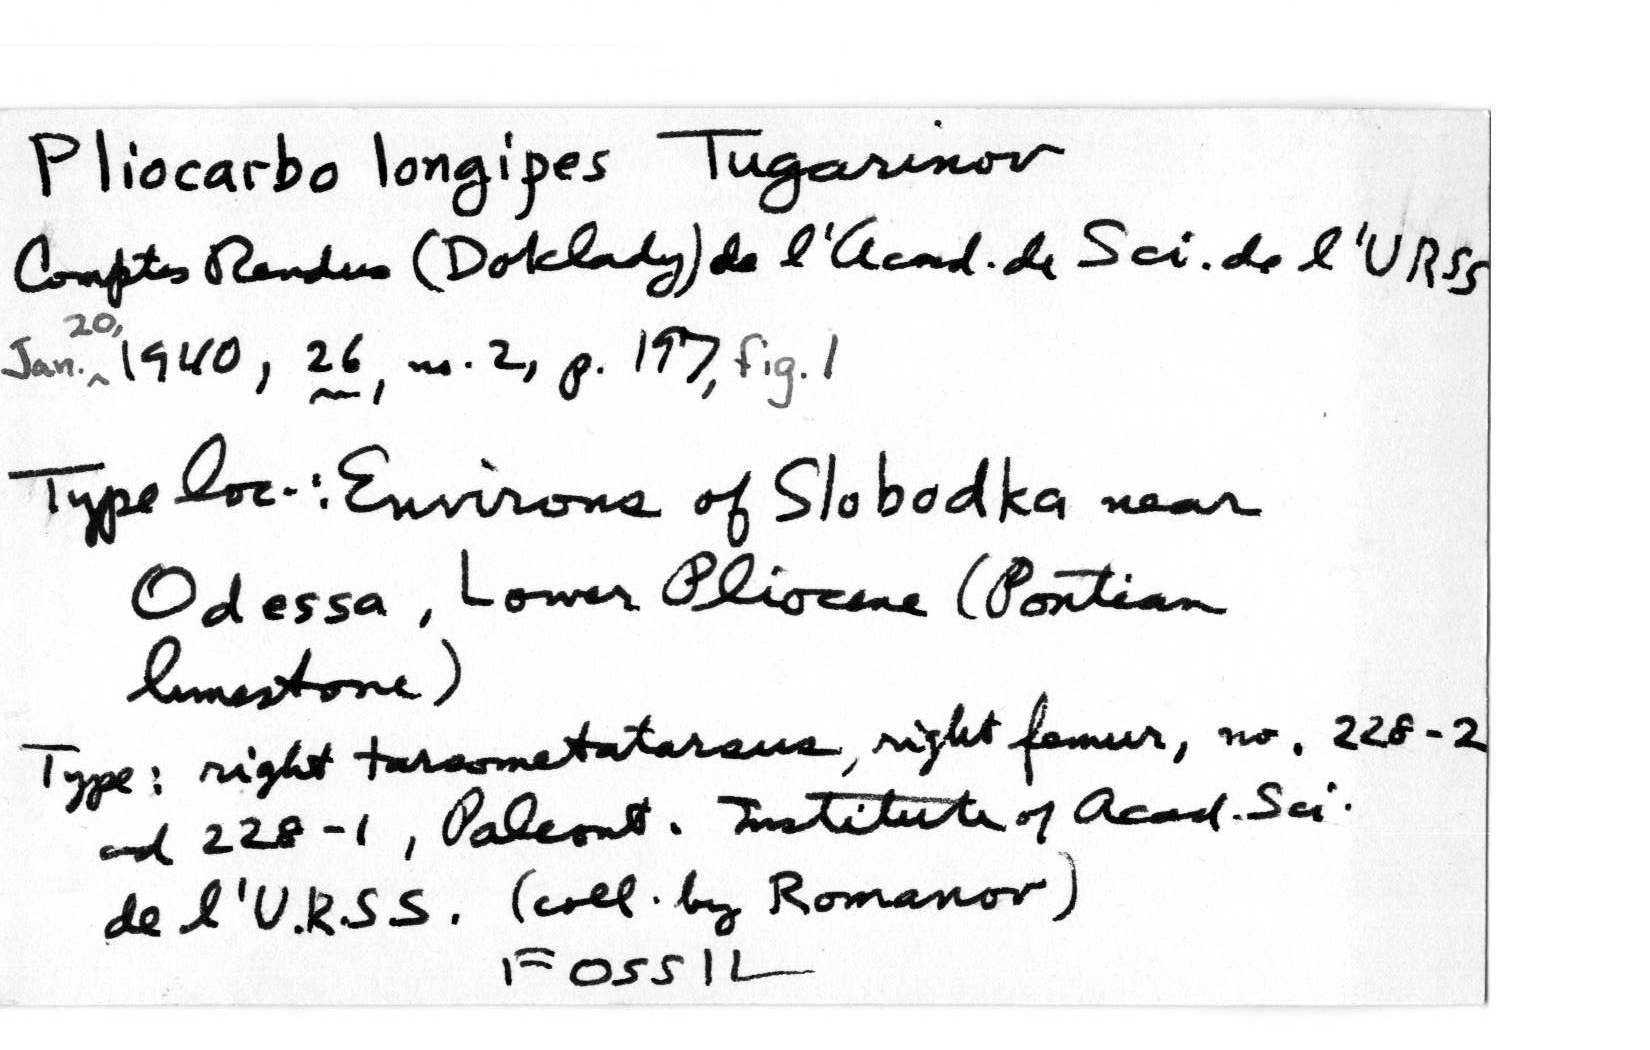 Pliocarbo longipes Tugarinov
Comptes Rendus (Doklady) de l'Acad. de Sci. de l'URSS
Jan. 20, 1940, 26, no. 2, p. 197, fig. 1
Type loc.: Environs of Slobodka near
Odessa, Lower Pliocene (Pontian
limestone)
Type: right tarsometatarsus, right femur, no. 228-2
and 228-1, Paleont. Institute of Acad. Sci.
de l'U.R.S.S. (coll. by Romanov)
FOSSIL